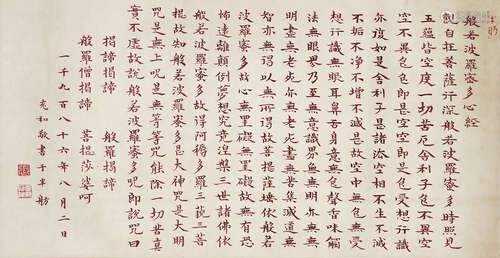 般若波羅蜜多心經
觀自在菩薩行深般若波羅蜜多時照見
五蘊皆空度一切苦厄舍利子色不異空
空不異色色即是空空即是色受想行識
亦復如是舍利子是諸法空相不生不滅
不垢不淨不增不減是故空中無色無受
想行識無眼耳鼻舌身意無色聲香味觸
法無眼界乃至無意識界無無明亦無無
明盡無老死亦無老死盡無苦集滅道無
智亦無得以無所得故菩提薩埵依般若
波羅蜜多故心無罣礙無罣礙故無有恐
怖遠離顛倒夢想究竟涅槃三世諸佛依
般若波羅蜜多故得阿耨多羅三藐三菩
提故知般若波羅蜜多是大神咒是大明
咒是無上咒是無等等咒能除一切苦真
實不虛故說般若波羅蜜多咒即說咒曰
揭諦揭諦 般羅揭諦
般羅僧揭諦 菩提莎婆呵
一千九百八十六年八月二日
充和敬書于半舫